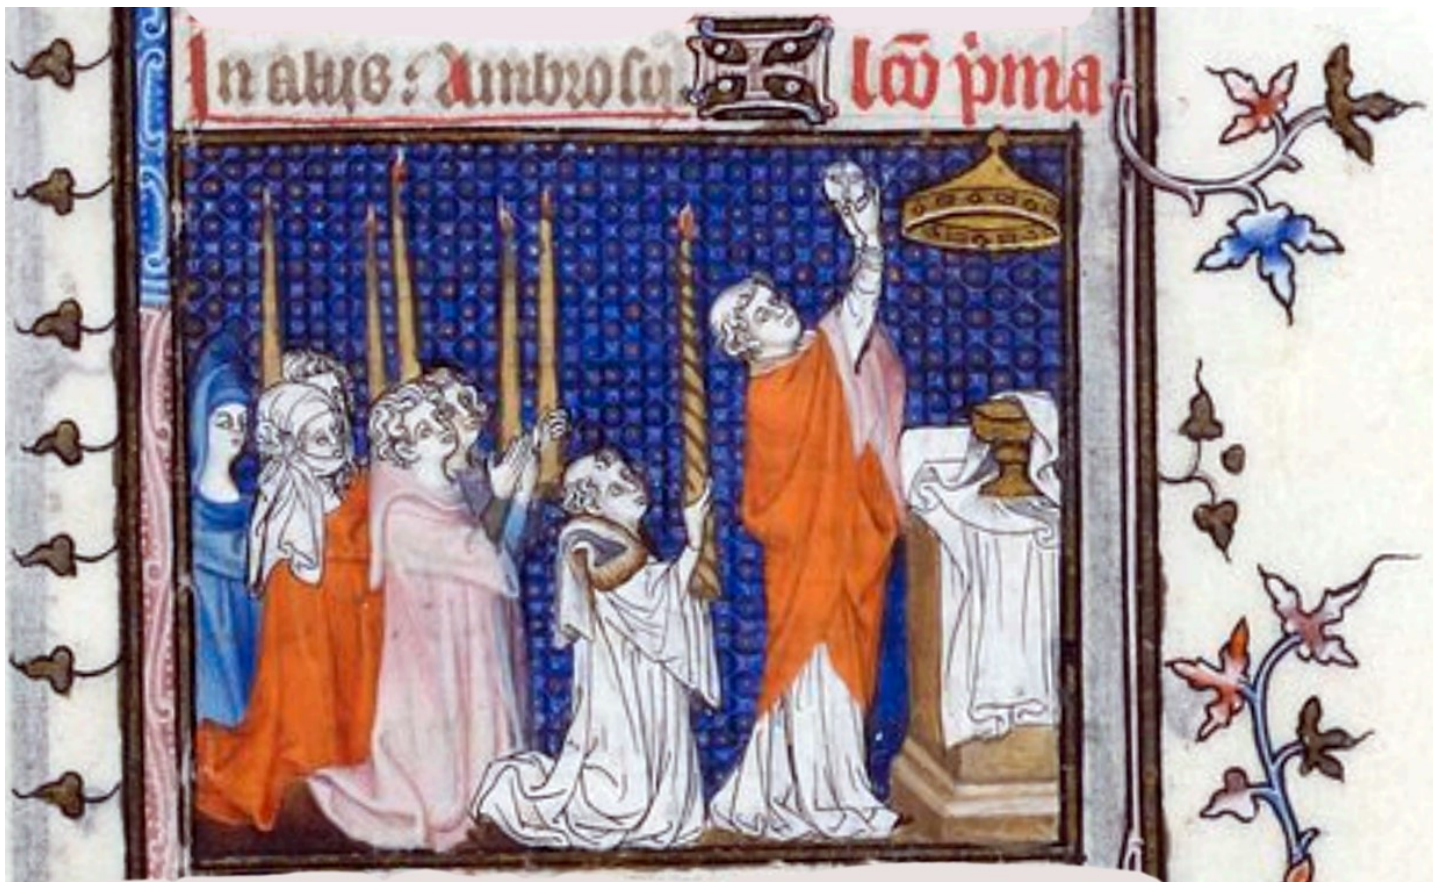 In aliis : Ambrosii lcō p̄ma